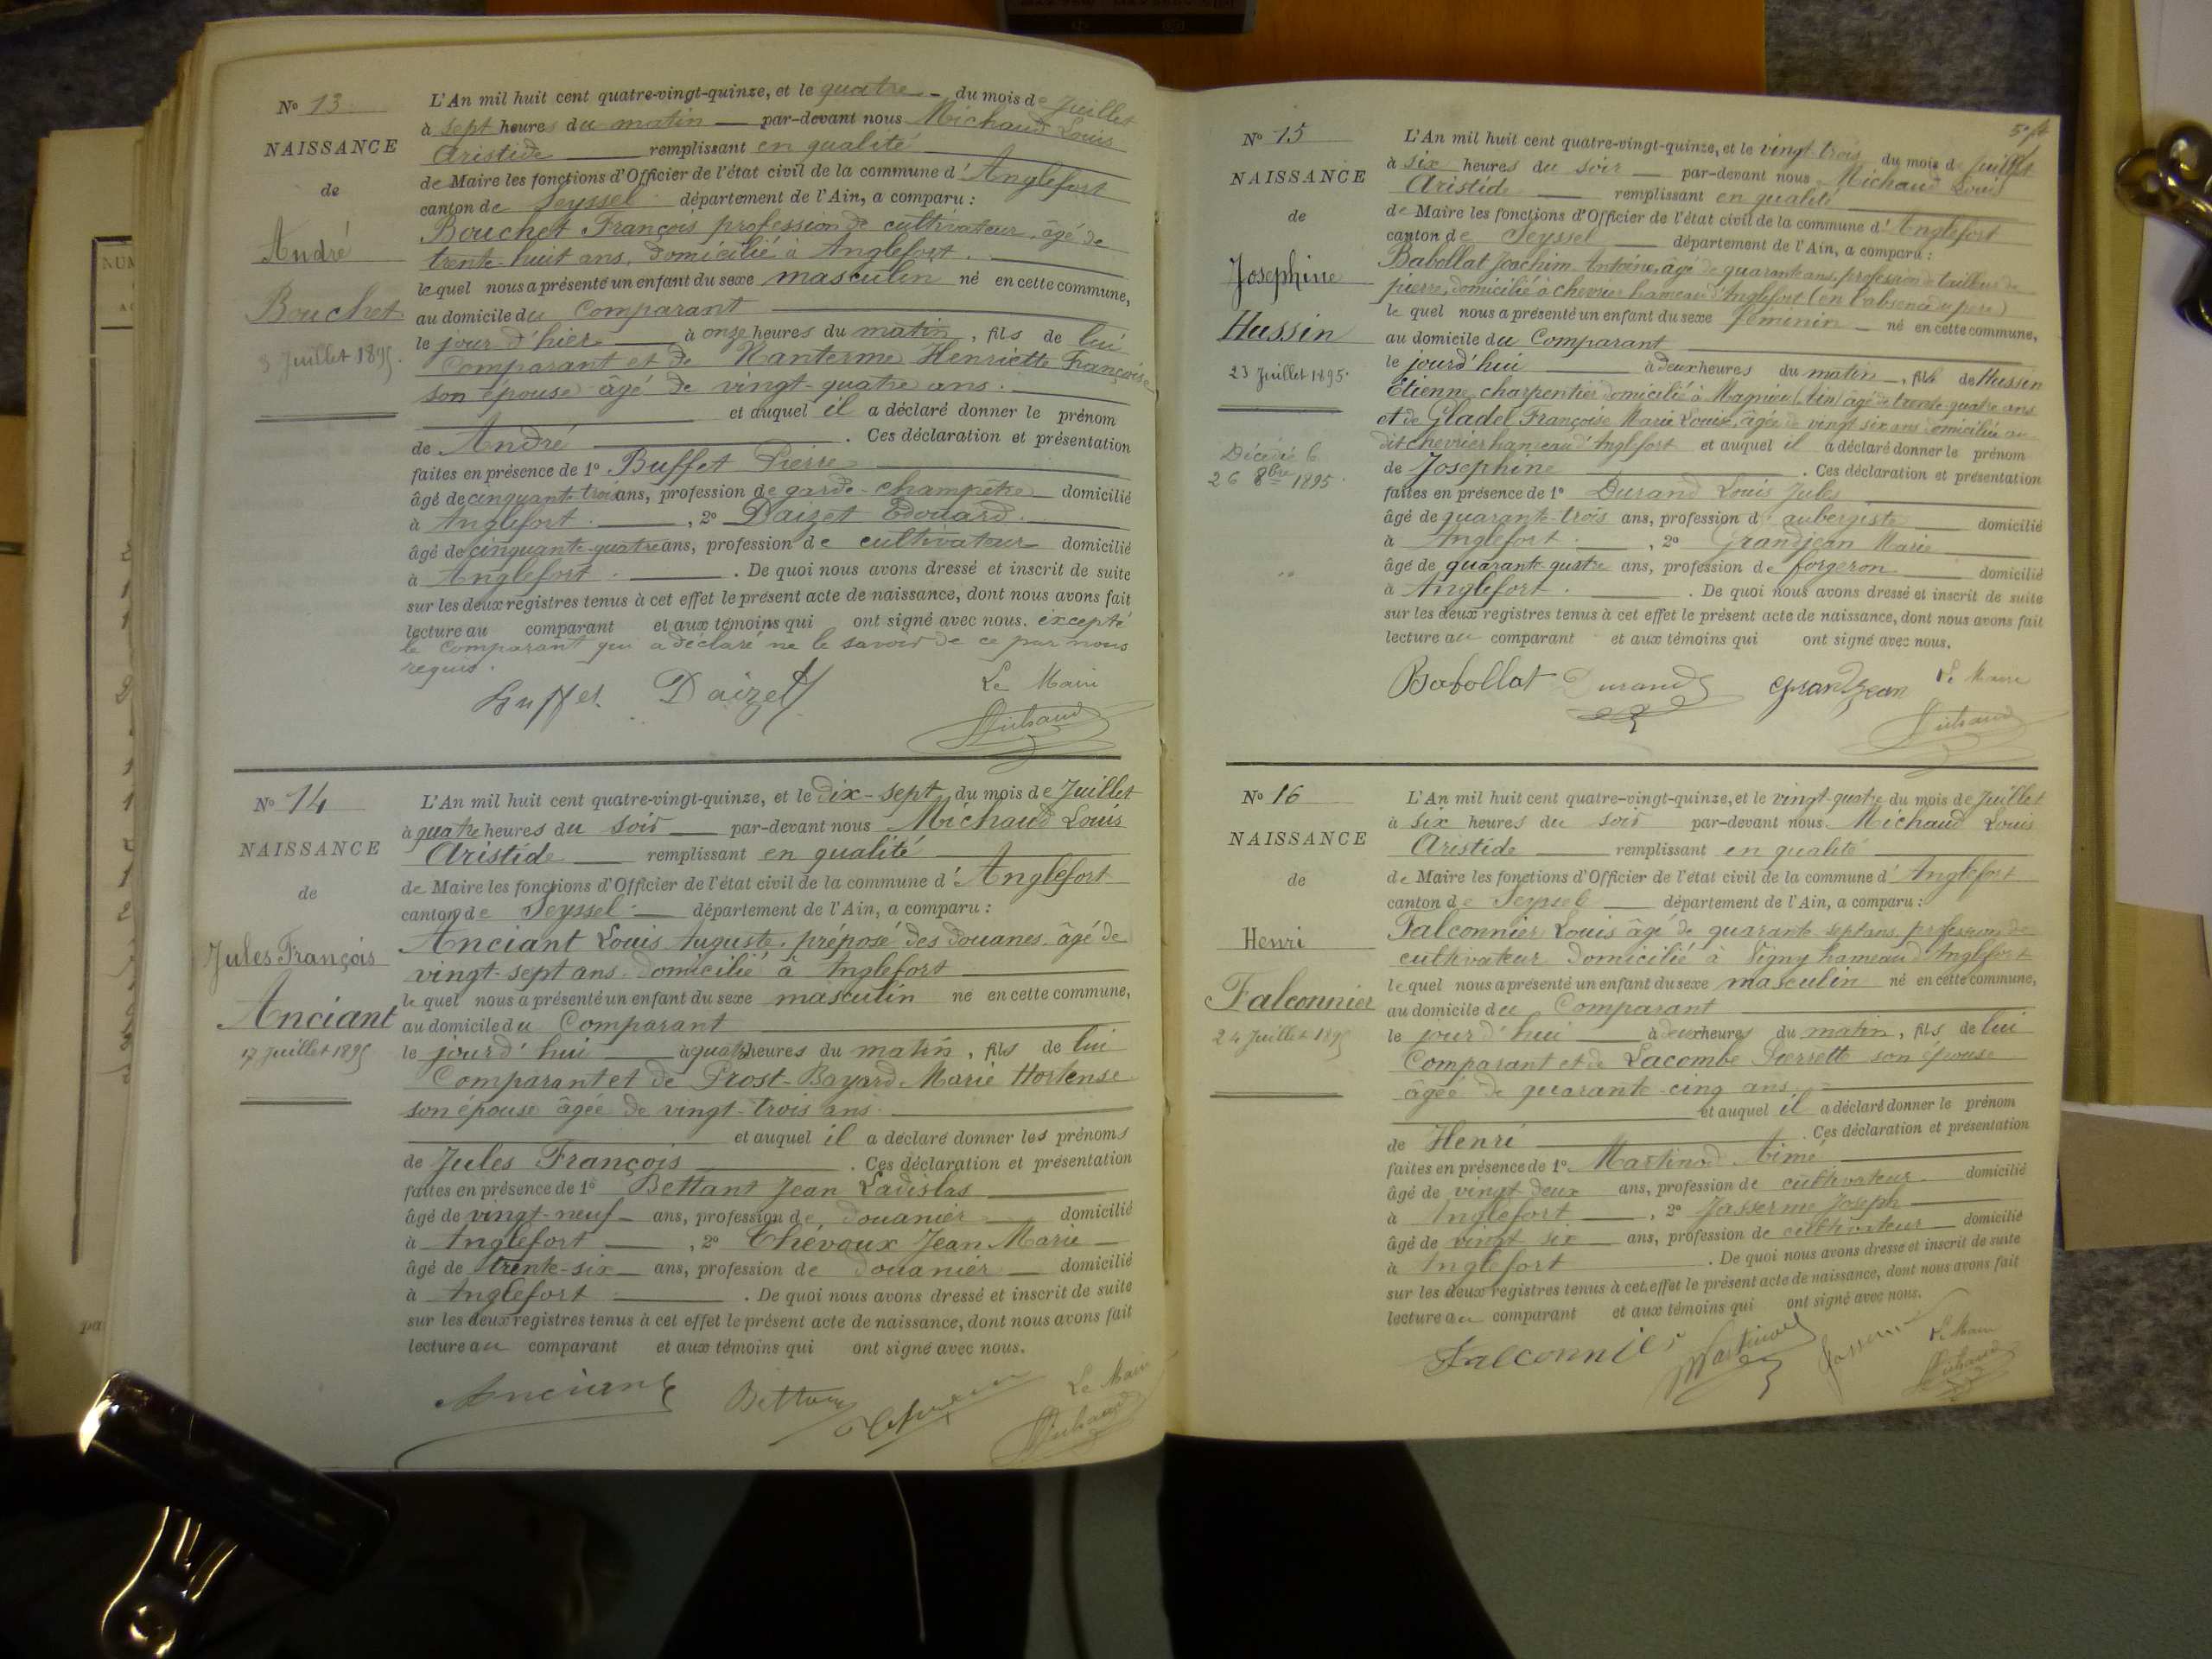 N° 13
NAISSANCE
de
André
Bouchet
3 Juillet 1895.
L'An mil huit cent quatre-vingt-quinze, et le quatre du mois de Juillet
à sept heures du matin par-devant nous Michaud Louis
Aristide remplissant en qualité
de Maire les fonctions d'Officier de l'état civil de la commune d'Anglefort
canton de Seyssel département de l'Ain, a comparu :
Bouchet François profession de cultivateur, âgé de
trente-huit ans, domicilié à Anglefort.
lequel nous a présenté un enfant du sexe masculin né en cette commune,
au domicile du Comparant
le jour d'hier à onze heures du matin, fils de lui
Comparant et de Nanterme Henriette Françoise
son épouse âgé de vingt-quatre ans.
et auquel il a déclaré donner le prénom
de André. Ces déclaration et présentation
faites en présence de 1° Buffet Pierre
âgé de cinquante-trois ans, profession de garde-champêtre domicilié
à Anglefort., 2° Daizet Edouard.
âgé de cinquante-quatre ans, profession de cultivateur domicilié
à Anglefort. De quoi nous avons dressé et inscrit de suite
sur les deux registres tenus à cet effet le présent acte de naissance, dont nous avons fait
lecture au comparant et aux témoins qui ont signé avec nous. excepté
le Comparant qui a déclaré ne le savoir de ce par nous
requis.
Buffet Daizet Le Maire
Michaud
N° 14
NAISSANCE
de
Jules François
Anciant
17 Juillet 1895
L'An mil huit cent quatre-vingt-quinze, et le dix-sept du mois de Juillet
à quatre heures du soir par-devant nous Michaud Louis
Aristide remplissant en qualité
de Maire les fonctions d'Officier de l'état civil de la commune d'Anglefort
canton de Seyssel. département de l'Ain, a comparu :
Anciant Louis Auguste, préposé des douanes âgé de
vingt-sept ans domicilié à Anglefort
lequel nous a présenté un enfant du sexe masculin né en cette commune,
au domicile du Comparant
le jourd'hui à quatre heures du matin, fils de lui
Comparant et de Prost-Bayard Marie Hortense
son épouse âgée de vingt-trois ans.
et auquel il a déclaré donner les prénoms
de Jules François. Ces déclaration et présentation
faites en présence de 1° Bettant Jean Ladislas
âgé de vingt-neuf ans, profession de douanier domicilié
à Anglefort, 2° Chevoux Jean Marie
âgé de trente-six ans, profession de douanier domicilié
à Anglefort. De quoi nous avons dressé et inscrit de suite
sur les deux registres tenus à cet effet le présent acte de naissance, dont nous avons fait
lecture au comparant et aux témoins qui ont signé avec nous.
Anciant Bettant Le Maire
Michaud
N° 15
NAISSANCE
de
Josephine
Hussin
23 Juillet 1895.
Décédé le
26 8bre 1895.
L'An mil huit cent quatre-vingt-quinze, et le vingt-trois du mois de Juillet
à six heures du soir par-devant nous Michaud Louis
Aristide remplissant en qualité
de Maire les fonctions d'Officier de l'état civil de la commune d'Anglefort
canton de Seyssel département de l'Ain, a comparu :
Babollat Joachim Antoine, âgé de quarante ans, profession de tailleur de
pierre, domicilié à Chevrier hameau d'Anglefort (en l'absence du père)
lequel nous a présenté un enfant du sexe féminin né en cette commune,
au domicile du Comparant
le jourd'hui à deux heures du matin, fils de Hussin
Etienne, charpentier domicilié à Magnieu (Ain) âgé de trente-quatre ans
et de Gladel Françoise Marie Louise, âgée de vingt six ans domiciliée au
dit chevrier hameau d'Anglefort et auquel il a déclaré donner le prénom
de Josephine. Ces déclaration et présentation
faites en présence de 1° Durand Louis Jules
âgé de quarante-trois ans, profession d'aubergiste domicilié
à Anglefort., 2° Grandjean Marie
âgé de quarante-quatre ans, profession de forgeron domicilié
à Anglefort. De quoi nous avons dressé et inscrit de suite
sur les deux registres tenus à cet effet le présent acte de naissance, dont nous avons fait
lecture au comparant et aux témoins qui ont signé avec nous.
Babollat Durand Grandjean Le Maire
Michaud
N° 16
NAISSANCE
de
Henri
Falconnier
24 Juillet 1895
L'An mil huit cent quatre-vingt-quinze, et le vingt-quatre du mois de Juillet
à six heures du soir par-devant nous Michaud Louis
Aristide remplissant en qualité
de Maire les fonctions d'Officier de l'état civil de la commune d'Anglefort
canton de Seyssel département de l'Ain, a comparu :
Falconnier Louis âgé de quarante-sept ans, profession de
cultivateur domicilié à Vigny hameau d'Anglefort
lequel nous a présenté un enfant du sexe masculin né en cette commune,
au domicile du Comparant
le jourd'hui à deux heures du matin, fils de lui
Comparant et de Lacombe Pierrette son épouse
âgée de quarante-cinq ans.
et auquel il a déclaré donner le prénom
de Henri. Ces déclaration et présentation
faites en présence de 1° Martinod Aimé
âgé de vingt-deux ans, profession de cultivateur domicilié
à Anglefort, 2° Jasserme Joseph
âgé de vingt six ans, profession de cultivateur domicilié
à Anglefort. De quoi nous avons dressé et inscrit de suite
sur les deux registres tenus à cet effet le présent acte de naissance, dont nous avons fait
lecture au comparant et aux témoins qui ont signé avec nous.
Falconnier Martinod Jasserme Le Maire
Michaud